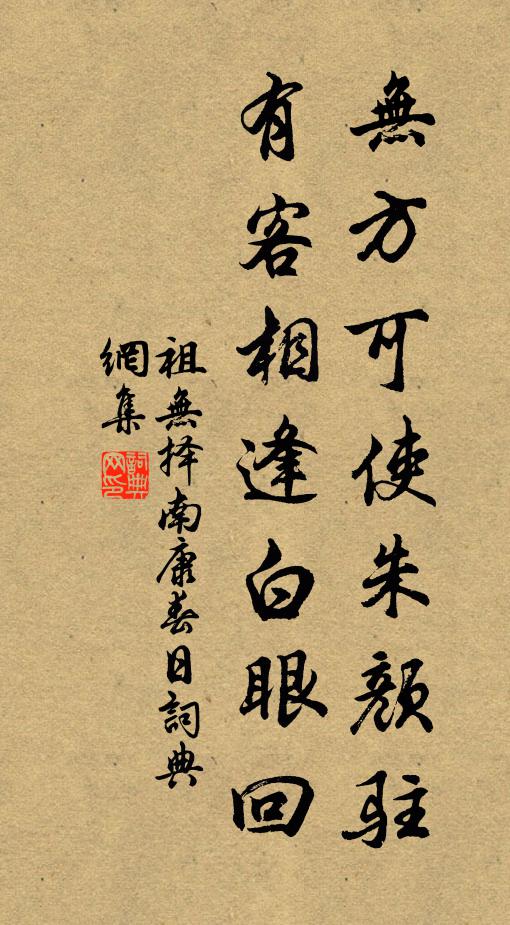 無方可使朱顏駐
有客相逢白眼回
祖無择南康春日詞典
網集
詞典網印